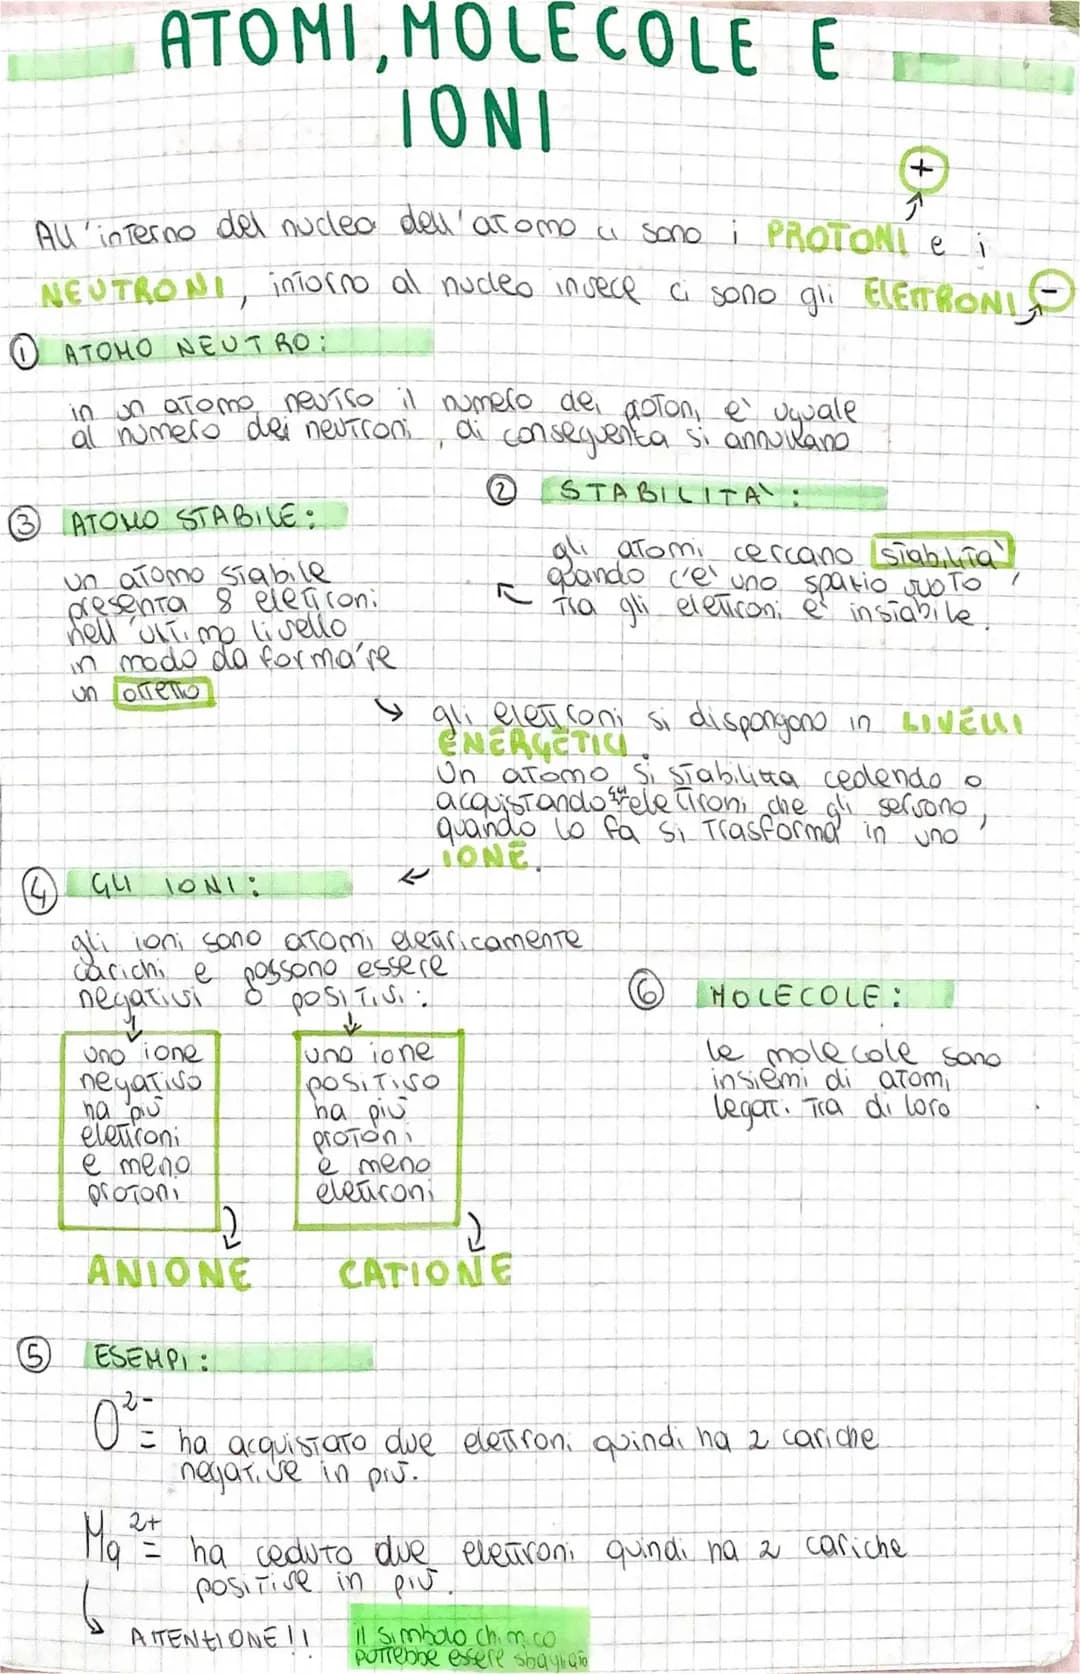 ATOMI, MOLECOLE E
IONI
+
All'interno del nucleo dell'atomo ci sono i PROTONI e i
NEUTRONI, intorno al nucleo invece ci sono gli ELETTRONI
-
① ATOMO NEUTRO:
in un atomo neutro il numero dei protoni e' uguale
al numero dei neutroni, di conseguenza si annullano
② STABILITA':
gli atomi cercano stabilita',
quando c'e' uno spazio vuoto
tra gli elettroni e' instabile.
③ ATOMO STABILE:
un atomo stabile
presenta 8 elettroni
nell'ultimo livello
in modo da formare
un ottetto
gli elettroni si dispongono in LIVELLI
ENERGETICI.
Un atomo si stabilizza cedendo o
acquistando gli elettroni che gli servono,
quando lo fa si trasforma in uno
IONE.
④ GLI IONI:
gli ioni sono atomi elettricamente
carichi e possono essere
negativi o positivi:
uno ione
negativo
ha più
elettroni
e meno
protoni
ANIONE
uno ione
positivo
ha più
protoni
e meno
elettroni
CATIONE
⑤ ESEMPI:
O²⁻ = ha acquistato due elettroni quindi ha 2 cariche
negative in più.
Mg²⁺ = ha ceduto due elettroni quindi ha 2 cariche
positive in più.
ATTENZIONE!!
il simbolo chimico
potrebbe essere sbagliato
⑥ MOLECOLE:
le molecole sono
insiemi di atomi
legati tra di loro